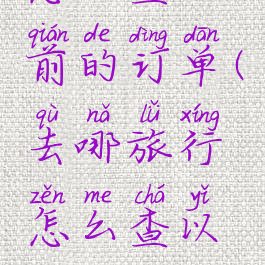 qián de dìng dān
前的订单(
qù nǎ lǚ xíng
去哪旅行
zěn me chá yǐ
怎么查以